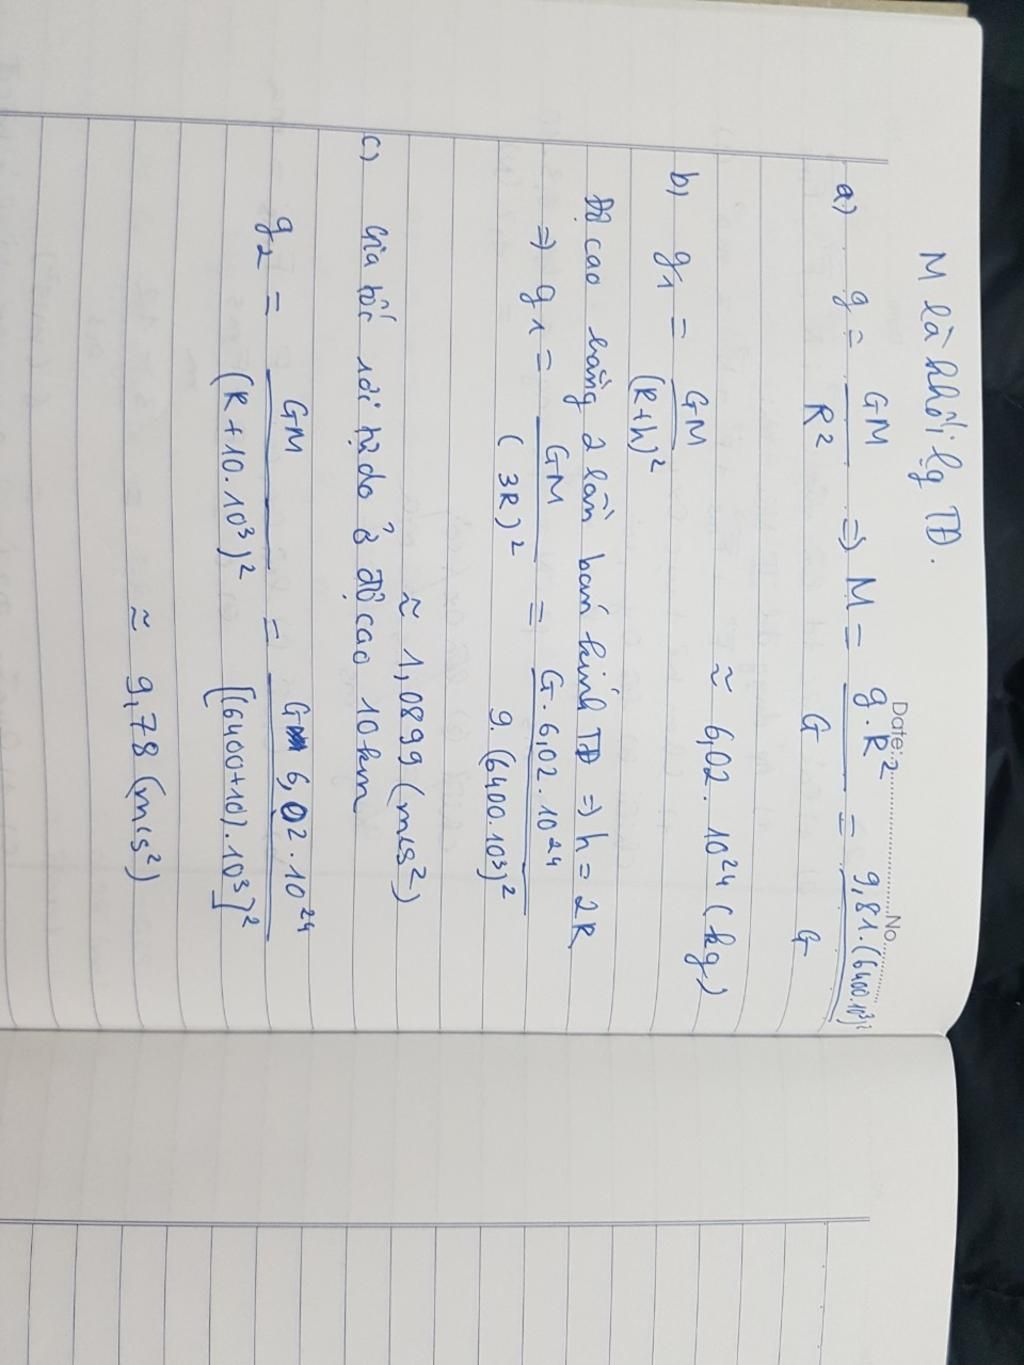 Date: No.
M là khối lg TĐ.
a) g = GM / R² => M = g.R² / G = 9,81.(6400.10³)² / G
≈ 6,02.10²⁴ (kg)
b) g₁ = GM / (R+h)²
Độ cao bằng 2 lần bán kính TĐ => h = 2R
=> g₁ = GM / (3R)² = G.6,02.10²⁴ / 9.(6400.10³)²
≈ 1,0899 (m/s²)
c) Gia tốc rơi tự do ở độ cao 10km
g₂ = GM / (R+10.10³)² = G 6,02.10²⁴ / [(6400+10).10³]²
≈ 9,78 (m/s²)